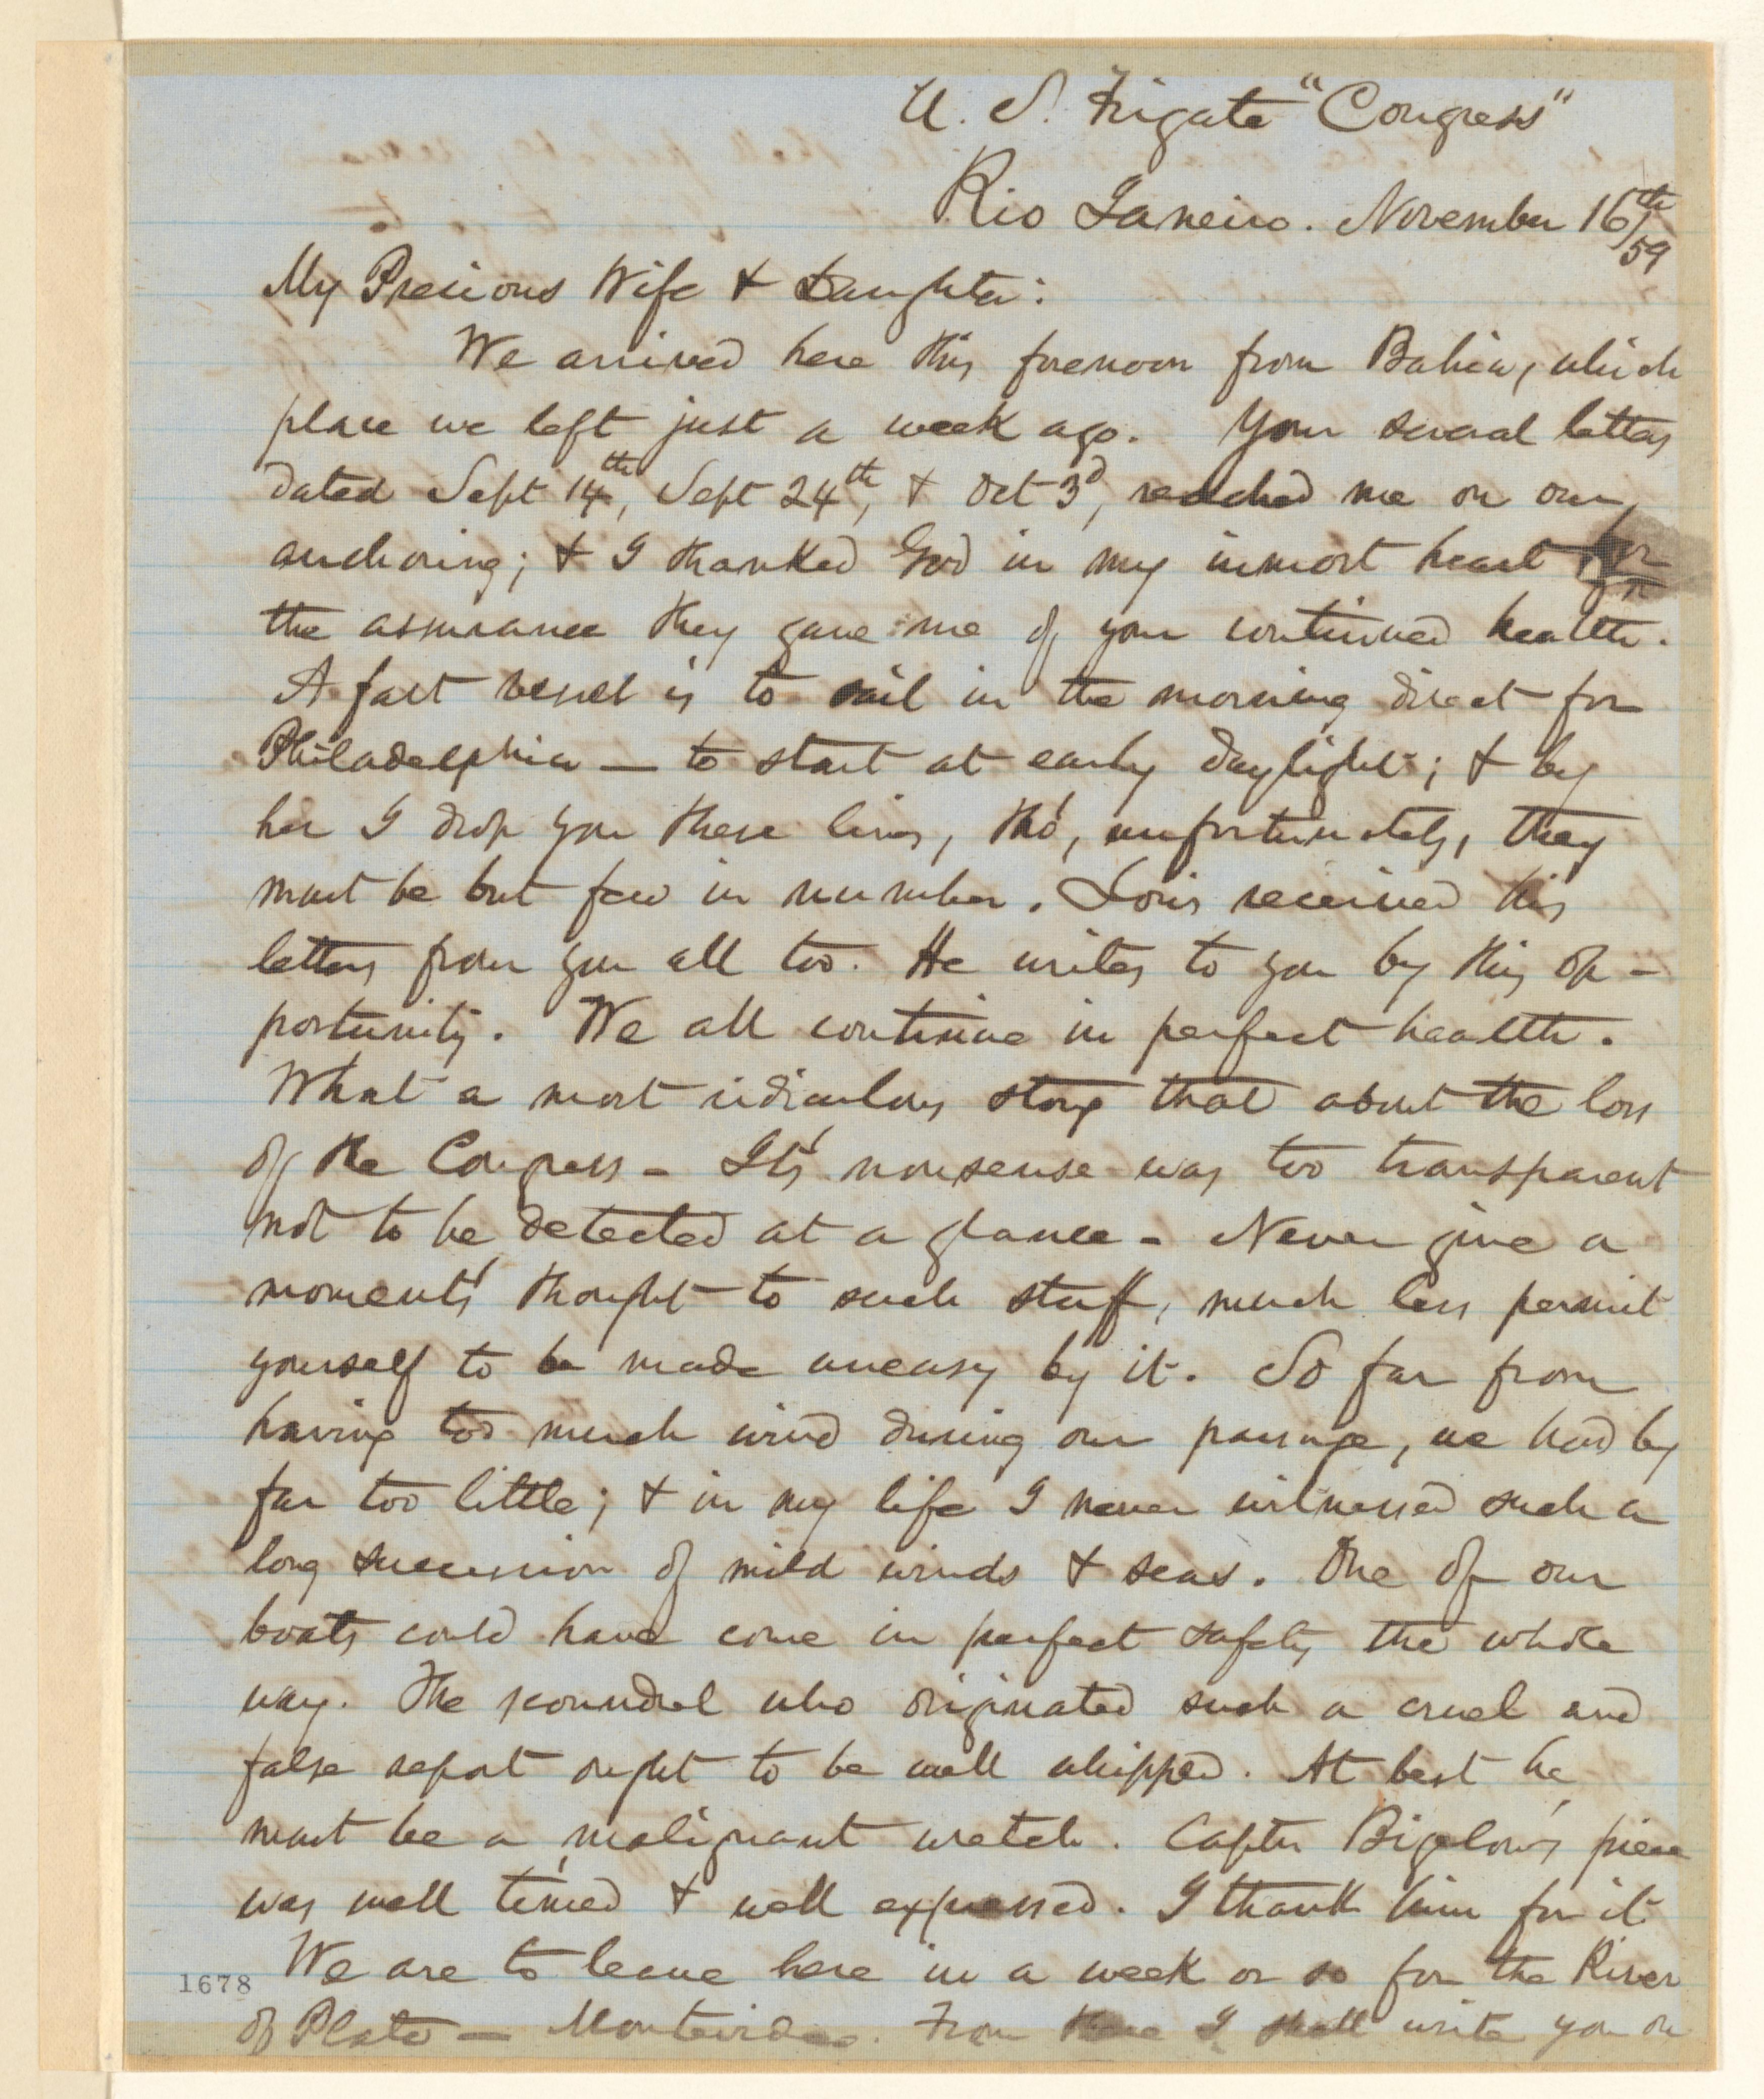 U. S. Frigate "Congress"
Rio Janeiro. November 16th/59
My Precious Wife & Daughter:
We arrived here this forenoon from Bahia, which
place we left just a week ago. Your several letters
dated Sept 14th, Sept 24th, & Oct 3d, reached me on our
anchoring; & I thanked God in my inmost heart for
the assurance they gave me of your continued health.
A fast vessel is to sail in the morning direct for
Philadelphia — to start at early daylight; & by
her I drop you these lines, tho', unfortunately, they
must be but few in number. Louis received his
letters from you all too. He writes to you by this op-
portunity. We all continue in perfect health.
What a most ridiculous story that about the loss
of the Congress - It's nonsense was too transparent
not to be detected at a glance - Never give a
moment's thought to such stuff, much less permit
yourself to be made uneasy by it. So far from
having too much wind during our passage, we had by
far too little; & in my life I never witnessed such a
long succession of mild winds & seas. One of our
boats could have come in perfect safety the whole
way. The scoundrel who originated such a cruel and
false report ought to be well whipped. At best he
must be a malignant wretch. Captn Bigelow's piece
was well timed & well expressed. I thank him for it
We are to leave here in a week or so for the River
1678
of Plate — Montevideo. From there I shall write you on